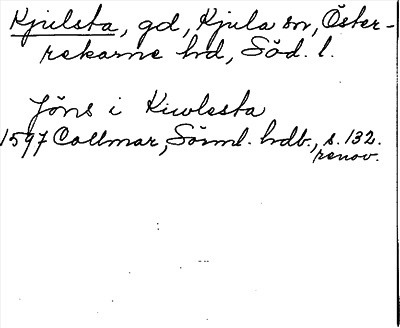 Kjulsta, gd, Kjula sn, Öster-
rekarne hd, Söd. l.
Jöns i Kiwlesta
1597 Collmar, Sörml. hdb., s. 132.
renov.